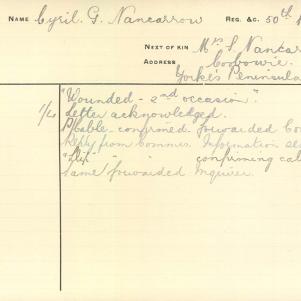 NAME Cyril. G. Nancarrow REG. &C. 50th
NEXT OF KIN Mrs S. Nancar
ADDRESS Coobowie.
Yorke's Peninsula
"Wounded - 2nd occasion".
letter acknowledged.
P/Cable confirmed. forwarded Co
Reply from Commrs. Information
" " confirming cal
same forwarded inquirer.